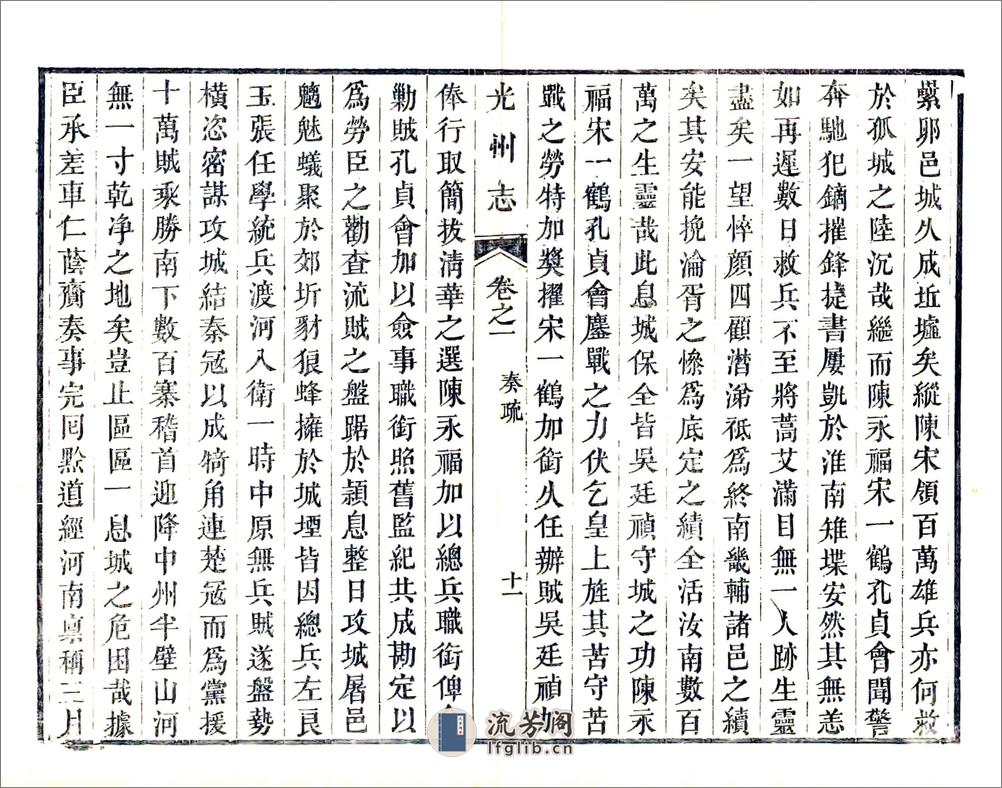 纍卵邑城久成坵墟矣縱陳宋領百萬雄兵亦何救
於孤城之陸沉哉繼而陳永福宋一鶴孔貞會聞警
奔馳犯鏑摧鋒捷書屢凱於淮南雉堞安然其無恙
如再遲數日救兵不至將蒿艾滿目無一人跡生靈
盡矣一望悴顏四顧潛涕祗爲終南畿輔諸邑之續
矣其安能挽淪胥之慘爲底定之績全活汝南數百
萬之生靈哉此息城保全皆吳廷禎守城之功陳永
福宋一鶴孔貞會鏖戰之力伏乞皇上旌其苦守苦
戰之勞特加奬擢宋一鶴加銜久任辦賊吳廷禎加
光州志 卷之一 奏疏 十一
俸行取簡拔淸華之選陳永福加以總兵職銜俾
勦賊孔貞會加以僉事職銜照舊監紀共成勘定以
爲勞臣之勸查流賊之盤踞於潁息整日攻城屠邑
魑魅蟻聚於郊圻豺狼蜂擁於城堙皆因總兵左良
玉張任學統兵渡河入衛一時中原無兵賊遂盤勢
橫恣密謀攻城結秦冦以成犄角連楚冦而爲黨援
十萬賊乘勝南下數百寨稽首迎降中州半壁山河
無一寸乾净之地矣豈止區區一息城之危困哉據
臣承差車仁蔭齎奏事完囘黙道經河南稟稱三月
流芳阁
lfglib.cn